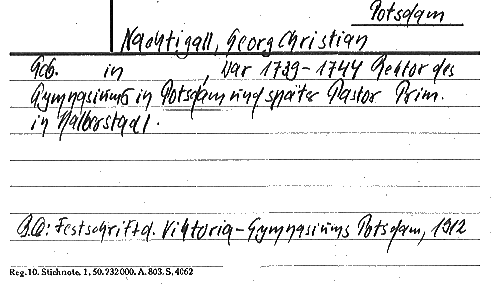 Potsdam
Nachtigall, Georg Christian
Geb. in , war 1739-1744 Rektor des
Gymnasiums in Potsdam und später Pastor Prim.
in Halberstadt.
B.Q: Festschrift d. Viktoria-Gymnasiums Potsdam, 1912
Reg. 10. Stichnote. 1, 50. 232000. A. 803. S. 4062